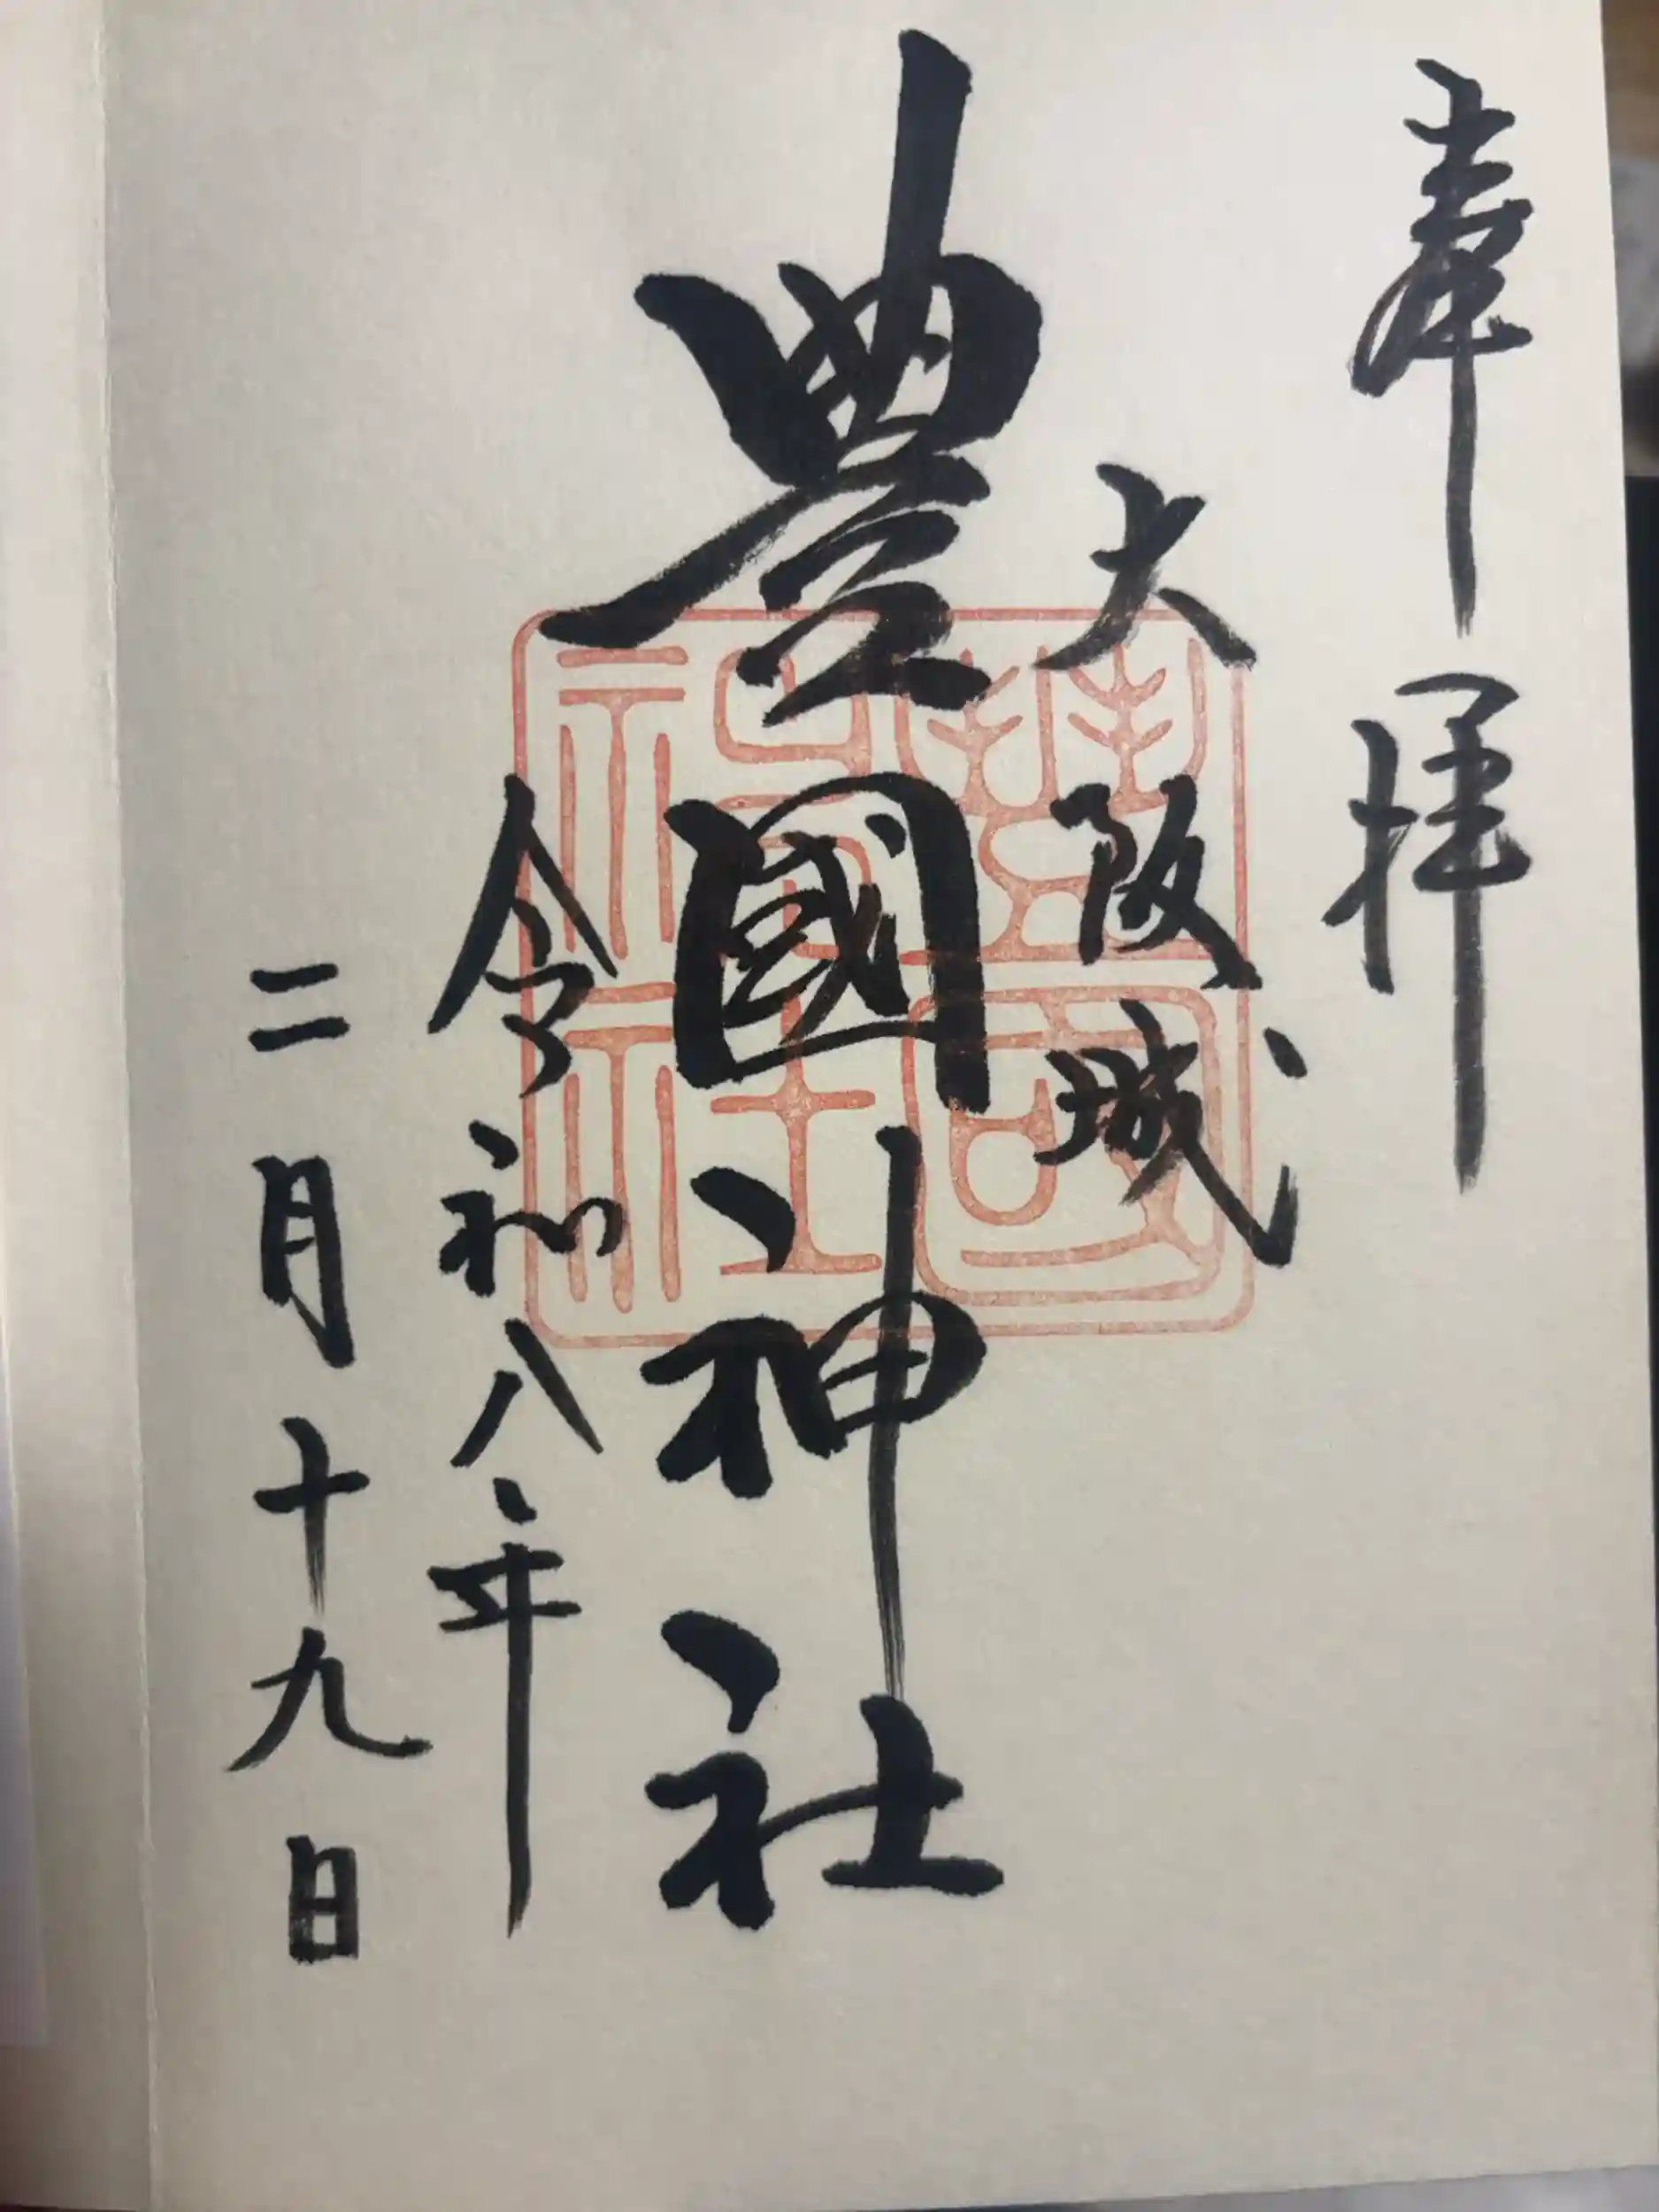 奉拝
大阪城
豊國神社
令和八年
二月十九日
豊國神社